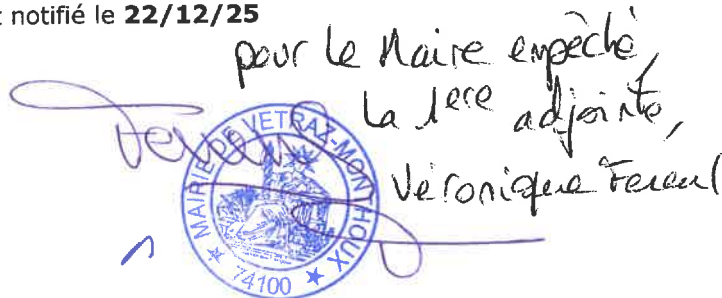 notifié le 22/12/25
pour le Maire empêché,
la 1ere adjointe,
Véronique
MAIRIE DE VETRAZ-MONTHOUX
74100